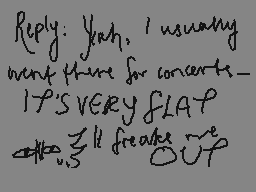 Reply: Yeah, I usually
went there for concerts_
IT'S VERY FLAT
It freaks me
OUT